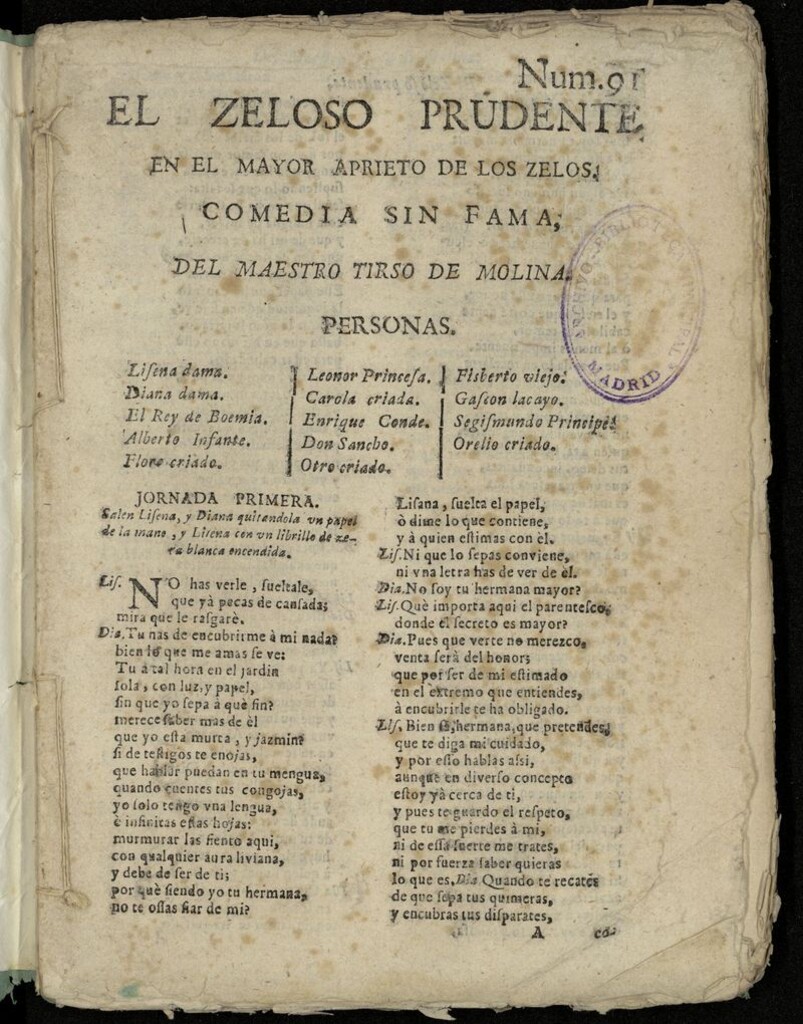 Num.91
EL ZELOSO PRUDENTE
EN EL MAYOR APRIETO DE LOS ZELOS,
COMEDIA SIN FAMA,
DEL MAESTRO TIRSO DE MOLINA.
MADRID
PERSONAS.
Lisena dama.
Diana dama.
El Rey de Boemia.
Alberto Infante.
Floro criado.
Leonor Princesa.
Carola criada.
Enrique Conde.
Don Sancho.
Otro criado.
Fisberto viejo.
Gascon lacayo.
Segismundo Principe.
Orelio criado.
JORNADA PRIMERA.
Salen Lisena, y Diana quitandola vn papel
de la mano, y Lisena con vn librillo de ze-
ra blanca encendida.
Lis. NO has verle, sueltale,
que yà pecas de cansada;
mira que le rasgarè.
Dia. Tu has de encubrirme à mi nada?
bien lo que me amas se ve:
Tu à tal hora en el jardin
sola, con luz, y papel,
sin que yo sepa à què fin?
merece saber mas de èl
que yo esta murta, y jazmin?
si de testigos te enojas,
que hablar puedan en tu mengua,
quando cuentes tus congojas,
yo solo tengo vna lengua,
è infinitas estas hojas:
murmurar las siento aqui,
con qualquier aura liviana,
y debe de ser de ti;
por què siendo yo tu hermana,
no te ossas fiar de mi?
Lisana, suelta el papel,
ò dime lo que contiene,
y à quien estimas con èl.
Lis. Ni que lo sepas conviene,
ni vna letra has de ver de èl.
Dia. No soy tu hermana mayor?
Lis. Què importa aqui el parentesco,
donde el secreto es mayor?
Dia. Pues que verte no merezco,
venta serà del honor;
que por ser de mi estimado
en el extremo que entiendes,
à encubrirle te ha obligado.
Lis. Bien sè, hermana, que pretendes,
que te diga mi cuidado,
y por esso hablas assi,
aunque en diverso concepto
estoy yà cerca de ti,
y pues te guardo el respeto,
que tu me pierdes à mi,
ni de essa suerte me trates,
ni por fuerza saber quieras
lo que es. Dia. Quando te recates
de que sepa tus quimeras,
y encubras tus disparates,
A